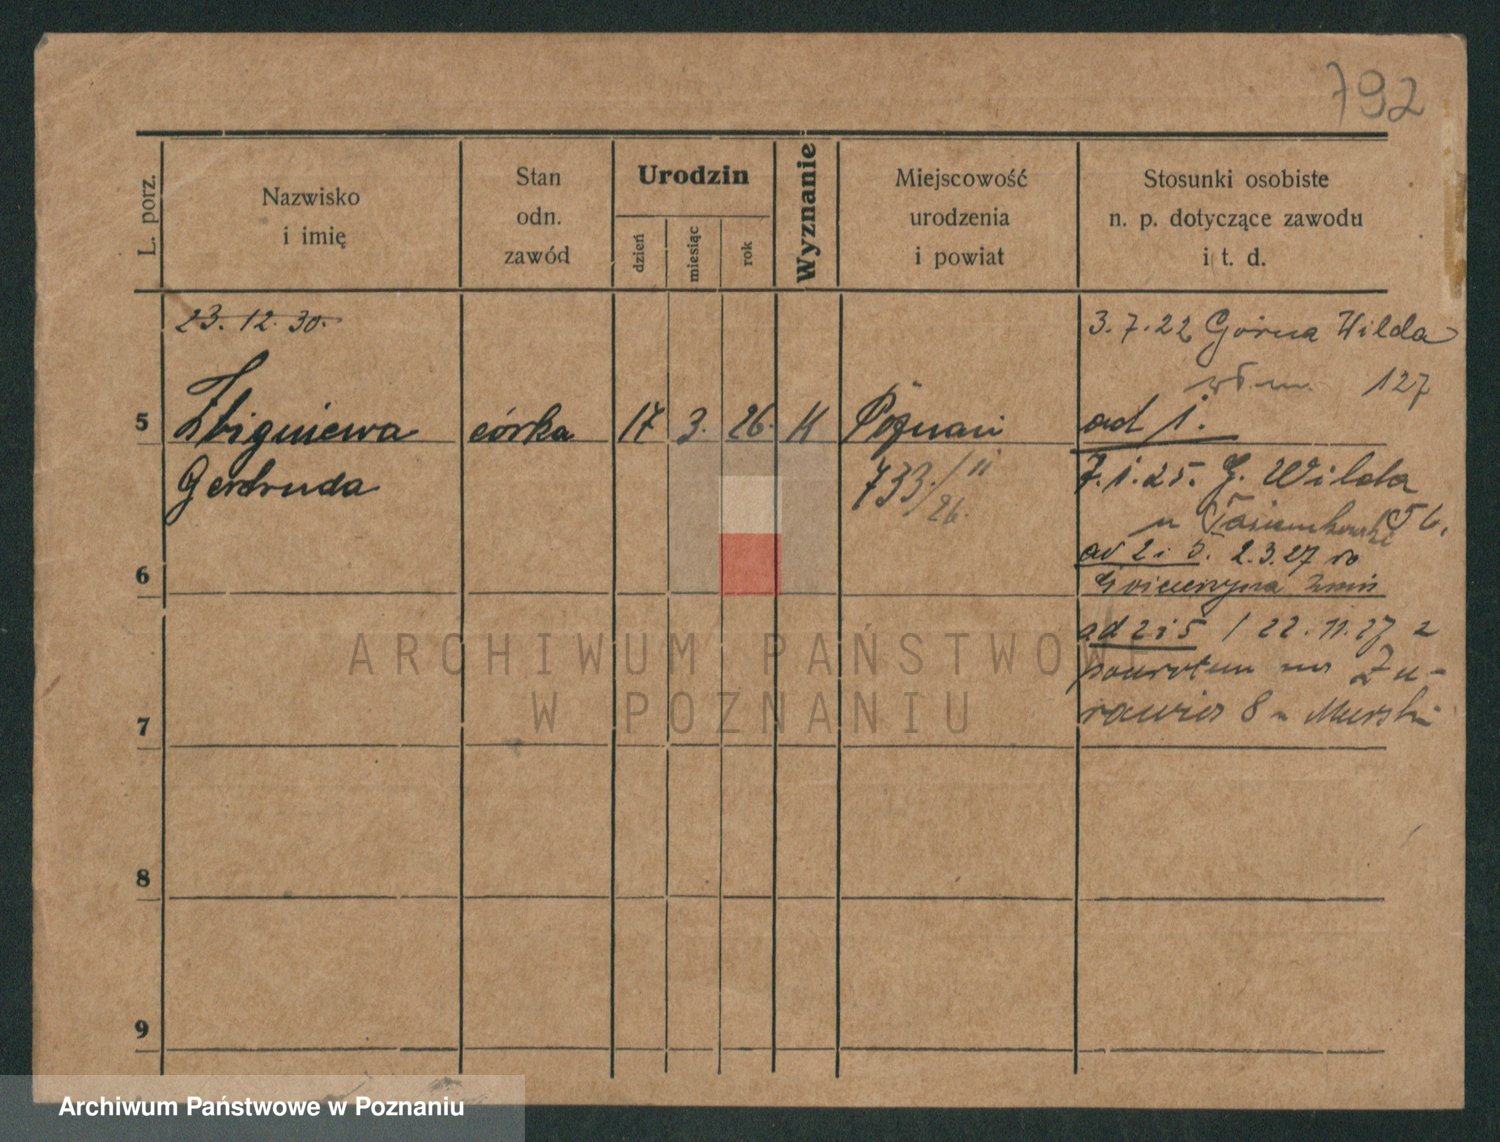 792
L. porz.
Nazwisko
i imię
Stan
odn.
zawód
Urodzin
dzień
miesiąc
rok
Wyznanie
Miejscowość
urodzenia
i powiat
Stosunki osobiste
n. p. dotyczące zawodu
i t. d.
23. 12. 30.
3. 7. 22 Górna Wilda
127
5
Zbigniewa
Gertruda
córka
17
3.
26.
K
Poznań
733/II
26.
ad 1.
7. 1. 25. G. Wilda
56.
6
ad 2 i 5. 2.3.27 do
ad 2 i 5 / 22. 11. 27 z
powrotem na Żu-
rawia 8
7
8
9
ARCHIWUM PAŃSTWOWE
W POZNANIU
Archiwum Państwowe w Poznaniu